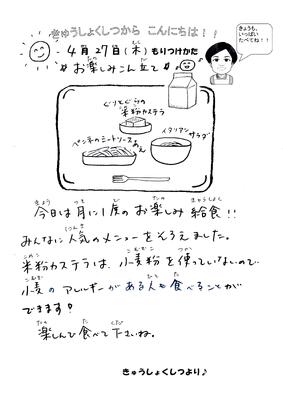 きゅうしょくしつから こんにちは!!
きょうも、
いっぱい
たべてね!!
4月27日(木) もりつけかた
#お楽しみこん立て#
ぐりとぐらの
米粉カステラ
ペンネのミートソースあえ
イタリアン
サラダ
今日は月に1度のお楽しみ給食!!
みんなに人気のメニューをそろえました。
米粉カステラは、小麦粉を使っていないので、
小麦のアレルギーがある人も食べることが
できます♪
楽しんで食べて下さいね。
きゅうしょくしつより♪